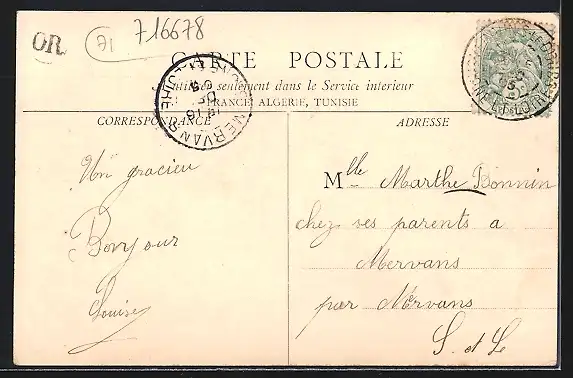 OR
71
716678
CARTE POSTALE
à utiliser seulement dans le Service intérieur
(FRANCE, ALGERIE, TUNISIE
CORRESPONDANCE
ADRESSE
MERVANS
Un gracieu
Bonjour
Louise
Mlle Marthe Bonnin
chez ses parents a
Mervans
par Mervans
S. et L.